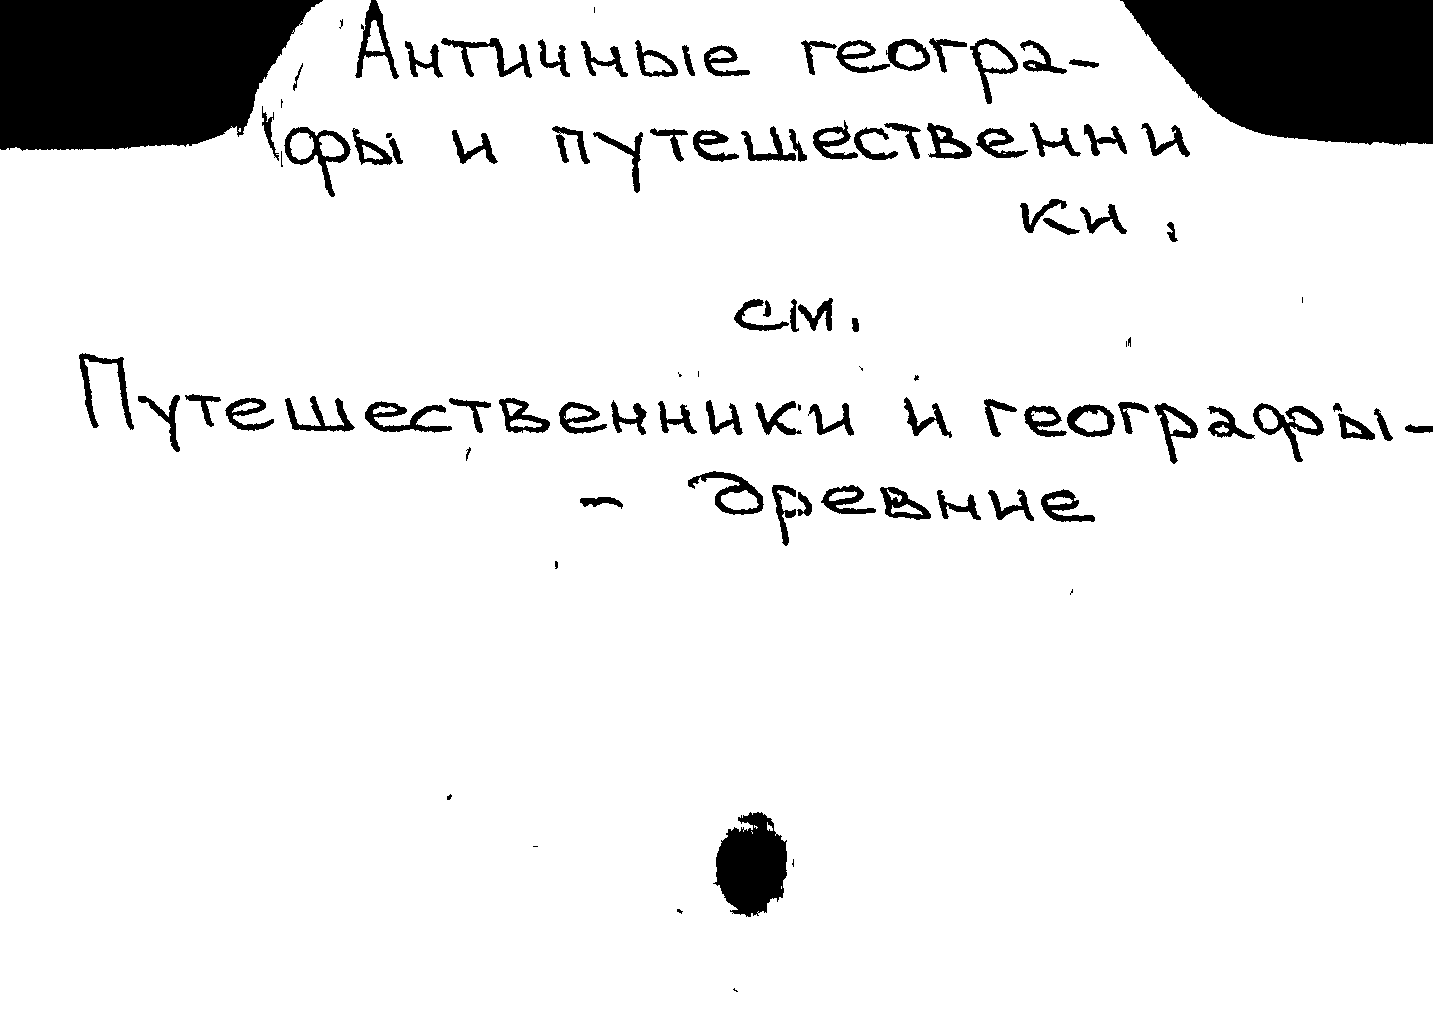 Античные геогра-
фы и путешественни
ки.
см.
Путешественники и географы-
- древние